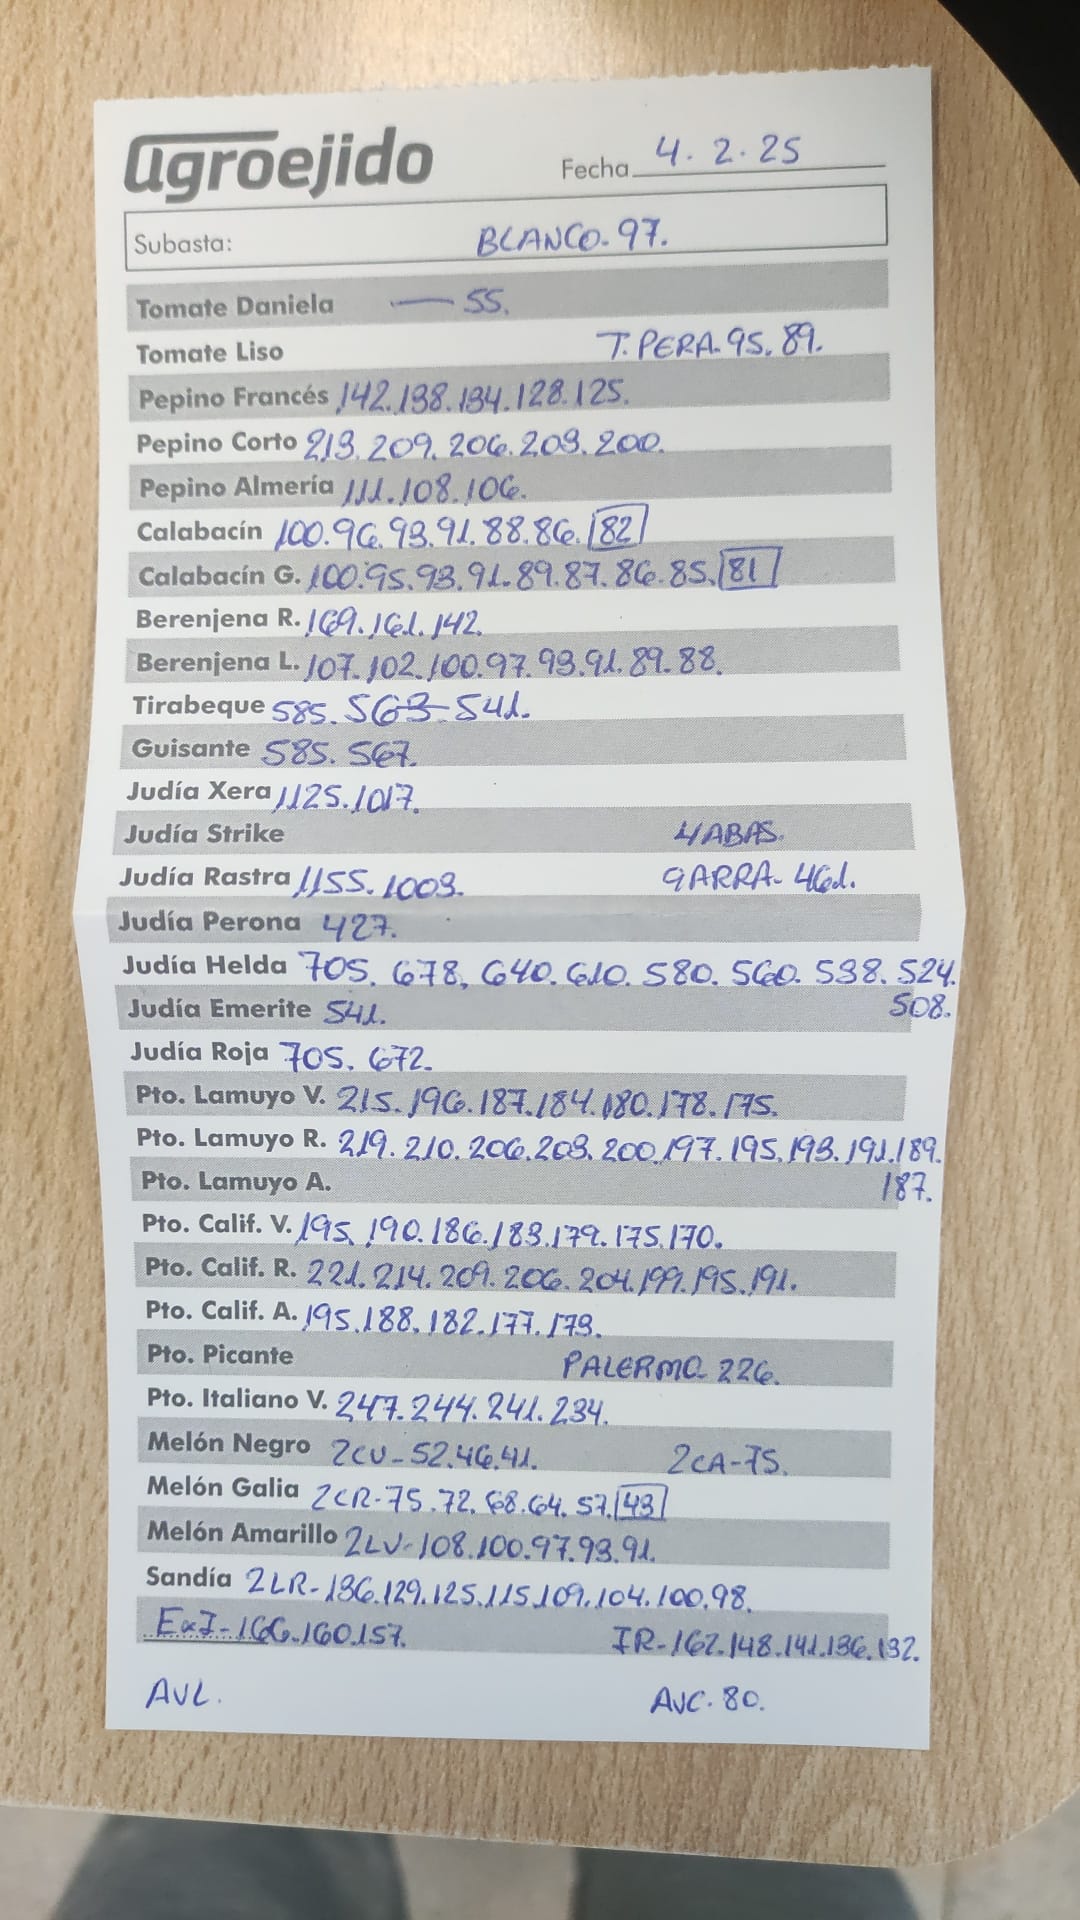 agroejido
Fecha 4.2.25
Subasta: BLANCO-97.
Tomate Daniela — 55.
Tomate Liso T.PERA-95.89.
Pepino Francés 142.138.134.128.125.
Pepino Corto 213.209.206.203.200.
Pepino Almería 111.108.106.
Calabacín 100.96.93.91.88.86.82
Calabacín G. 100.95.93.91.89.87.86.85.81
Berenjena R. 169.161.142.
Berenjena L. 107.102.100.97.93.91.89.88.
Tirabeque 585.563-541.
Guisante 585.567.
Judía Xera 1125.1017.
Judía Strike HABAS.
Judía Rastra 1155.1003. GARRA-461.
Judía Perona 427.
Judía Helda 705.678.640.610.580.560.538.524.
Judía Emerite 541. 508.
Judía Roja 705.672.
Pto. Lamuyo V. 215.196.187.184.180.178.175.
Pto. Lamuyo R. 219.210.206.203.200.197.195.193.191.189.
Pto. Lamuyo A. 187.
Pto. Calif. V. 195.190.186.183.179.175.170.
Pto. Calif. R. 221.214.209.206.204.199.195.191.
Pto. Calif. A. 195.188.182.177.173.
Pto. Picante PALERMO-226.
Pto. Italiano V. 247.244.241.234.
Melón Negro 2CV-52.46.41. 2CA-75.
Melón Galia 2CR-75.72.68.64.57.43
Melón Amarillo 2LV-108.100.97.93.91.
Sandía 2LR-136.129.125.115.109.104.100.98.
ExI-166.160.157. IR-162.148.141.136.132.
AVL. AVC.80.